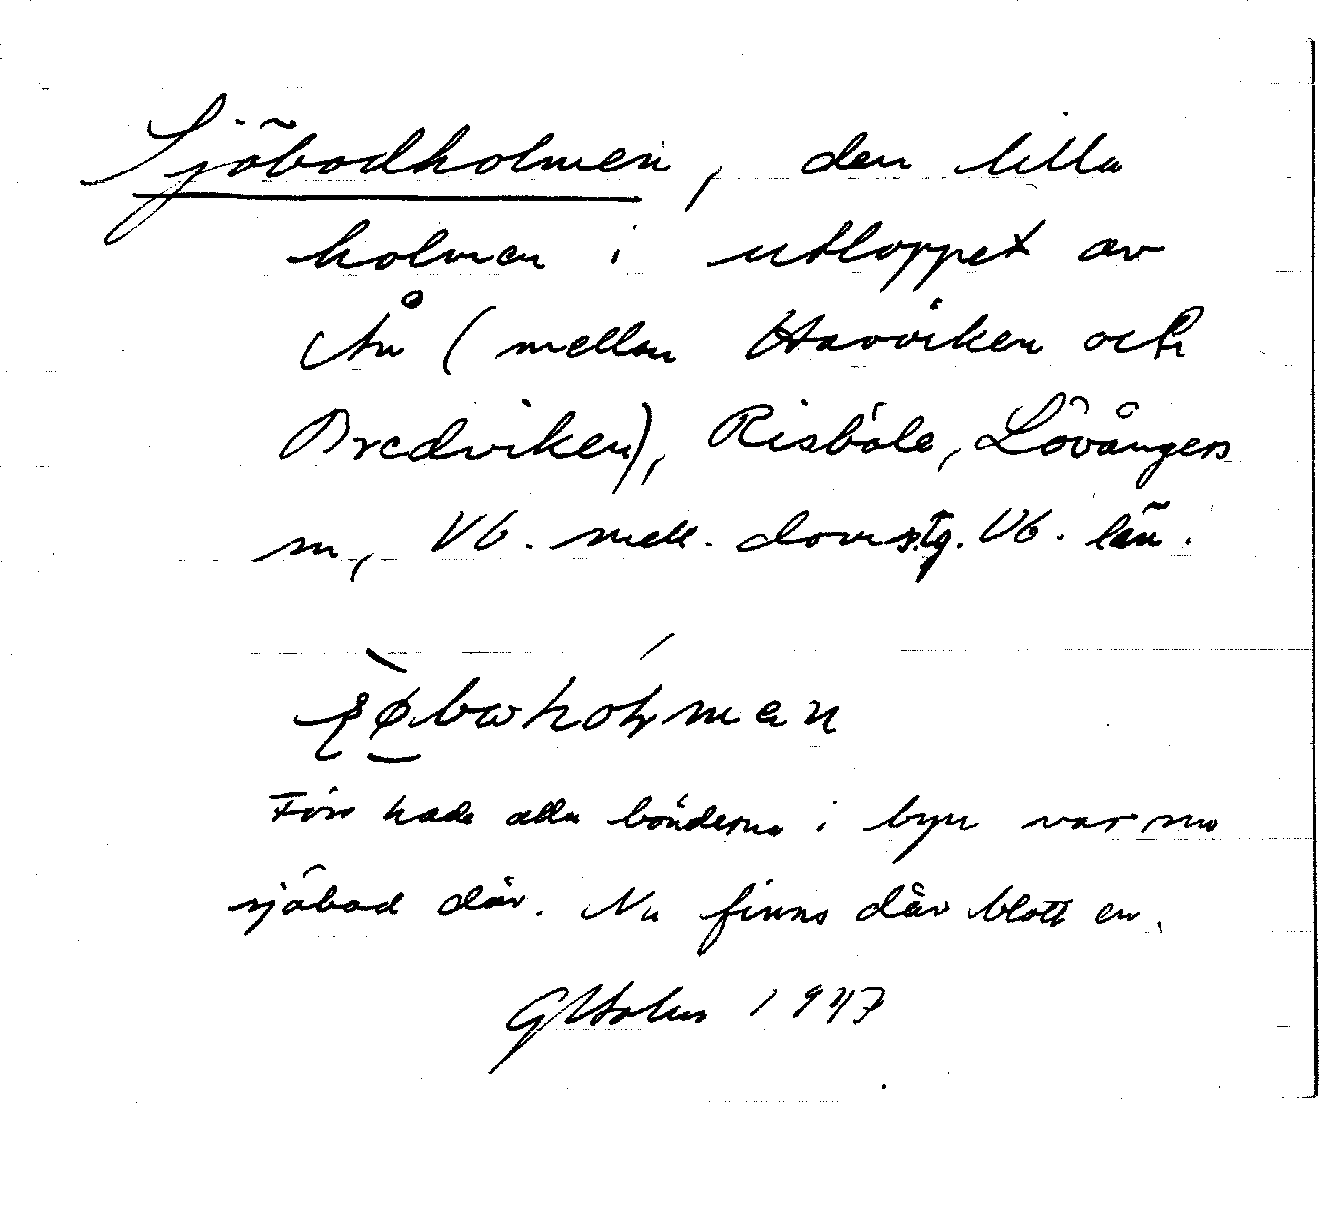 Sjöbodholmen, den lilla
holmen i utloppet av
Ån (mellan Havviken och
Bredviken), Risböle, Lövångers
sn, Vb. mell. doms.tg. Vb. län.
Förr hade alla bönderna i byn var sin
sjöbod där. Nu finns där blott en.
G Holm 1947